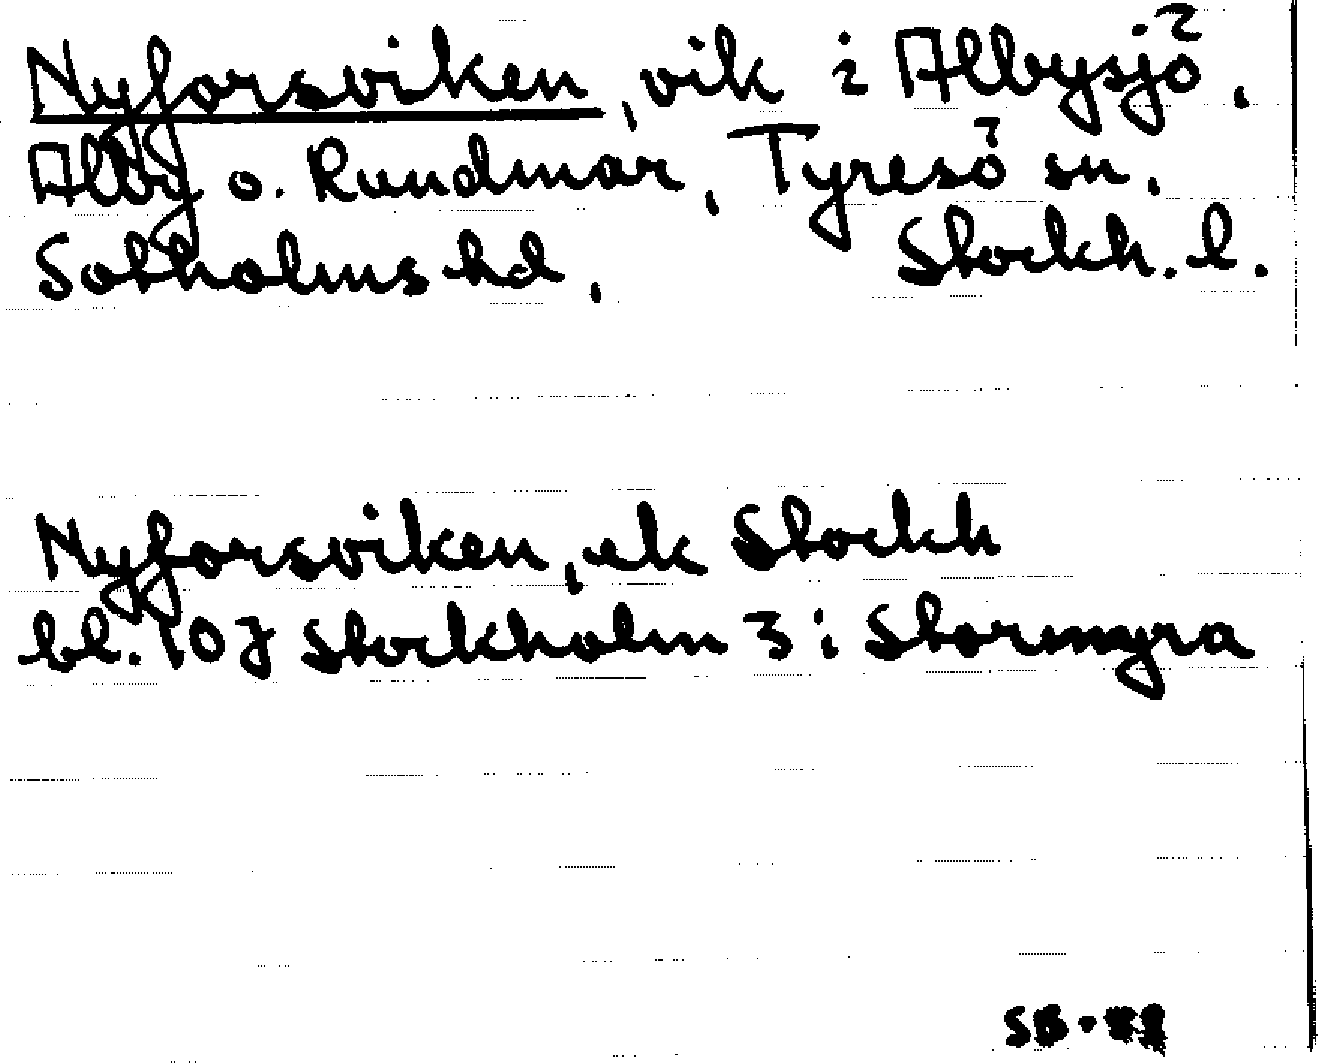 Nyforsviken, vik i Albysjö,
Alby o. Rundmar, Tyresö sn,
Sotholms hd, Stockh. l.
Nyforsviken, ek Stockh
bl. 107 Stockholm 3 i Stormyra